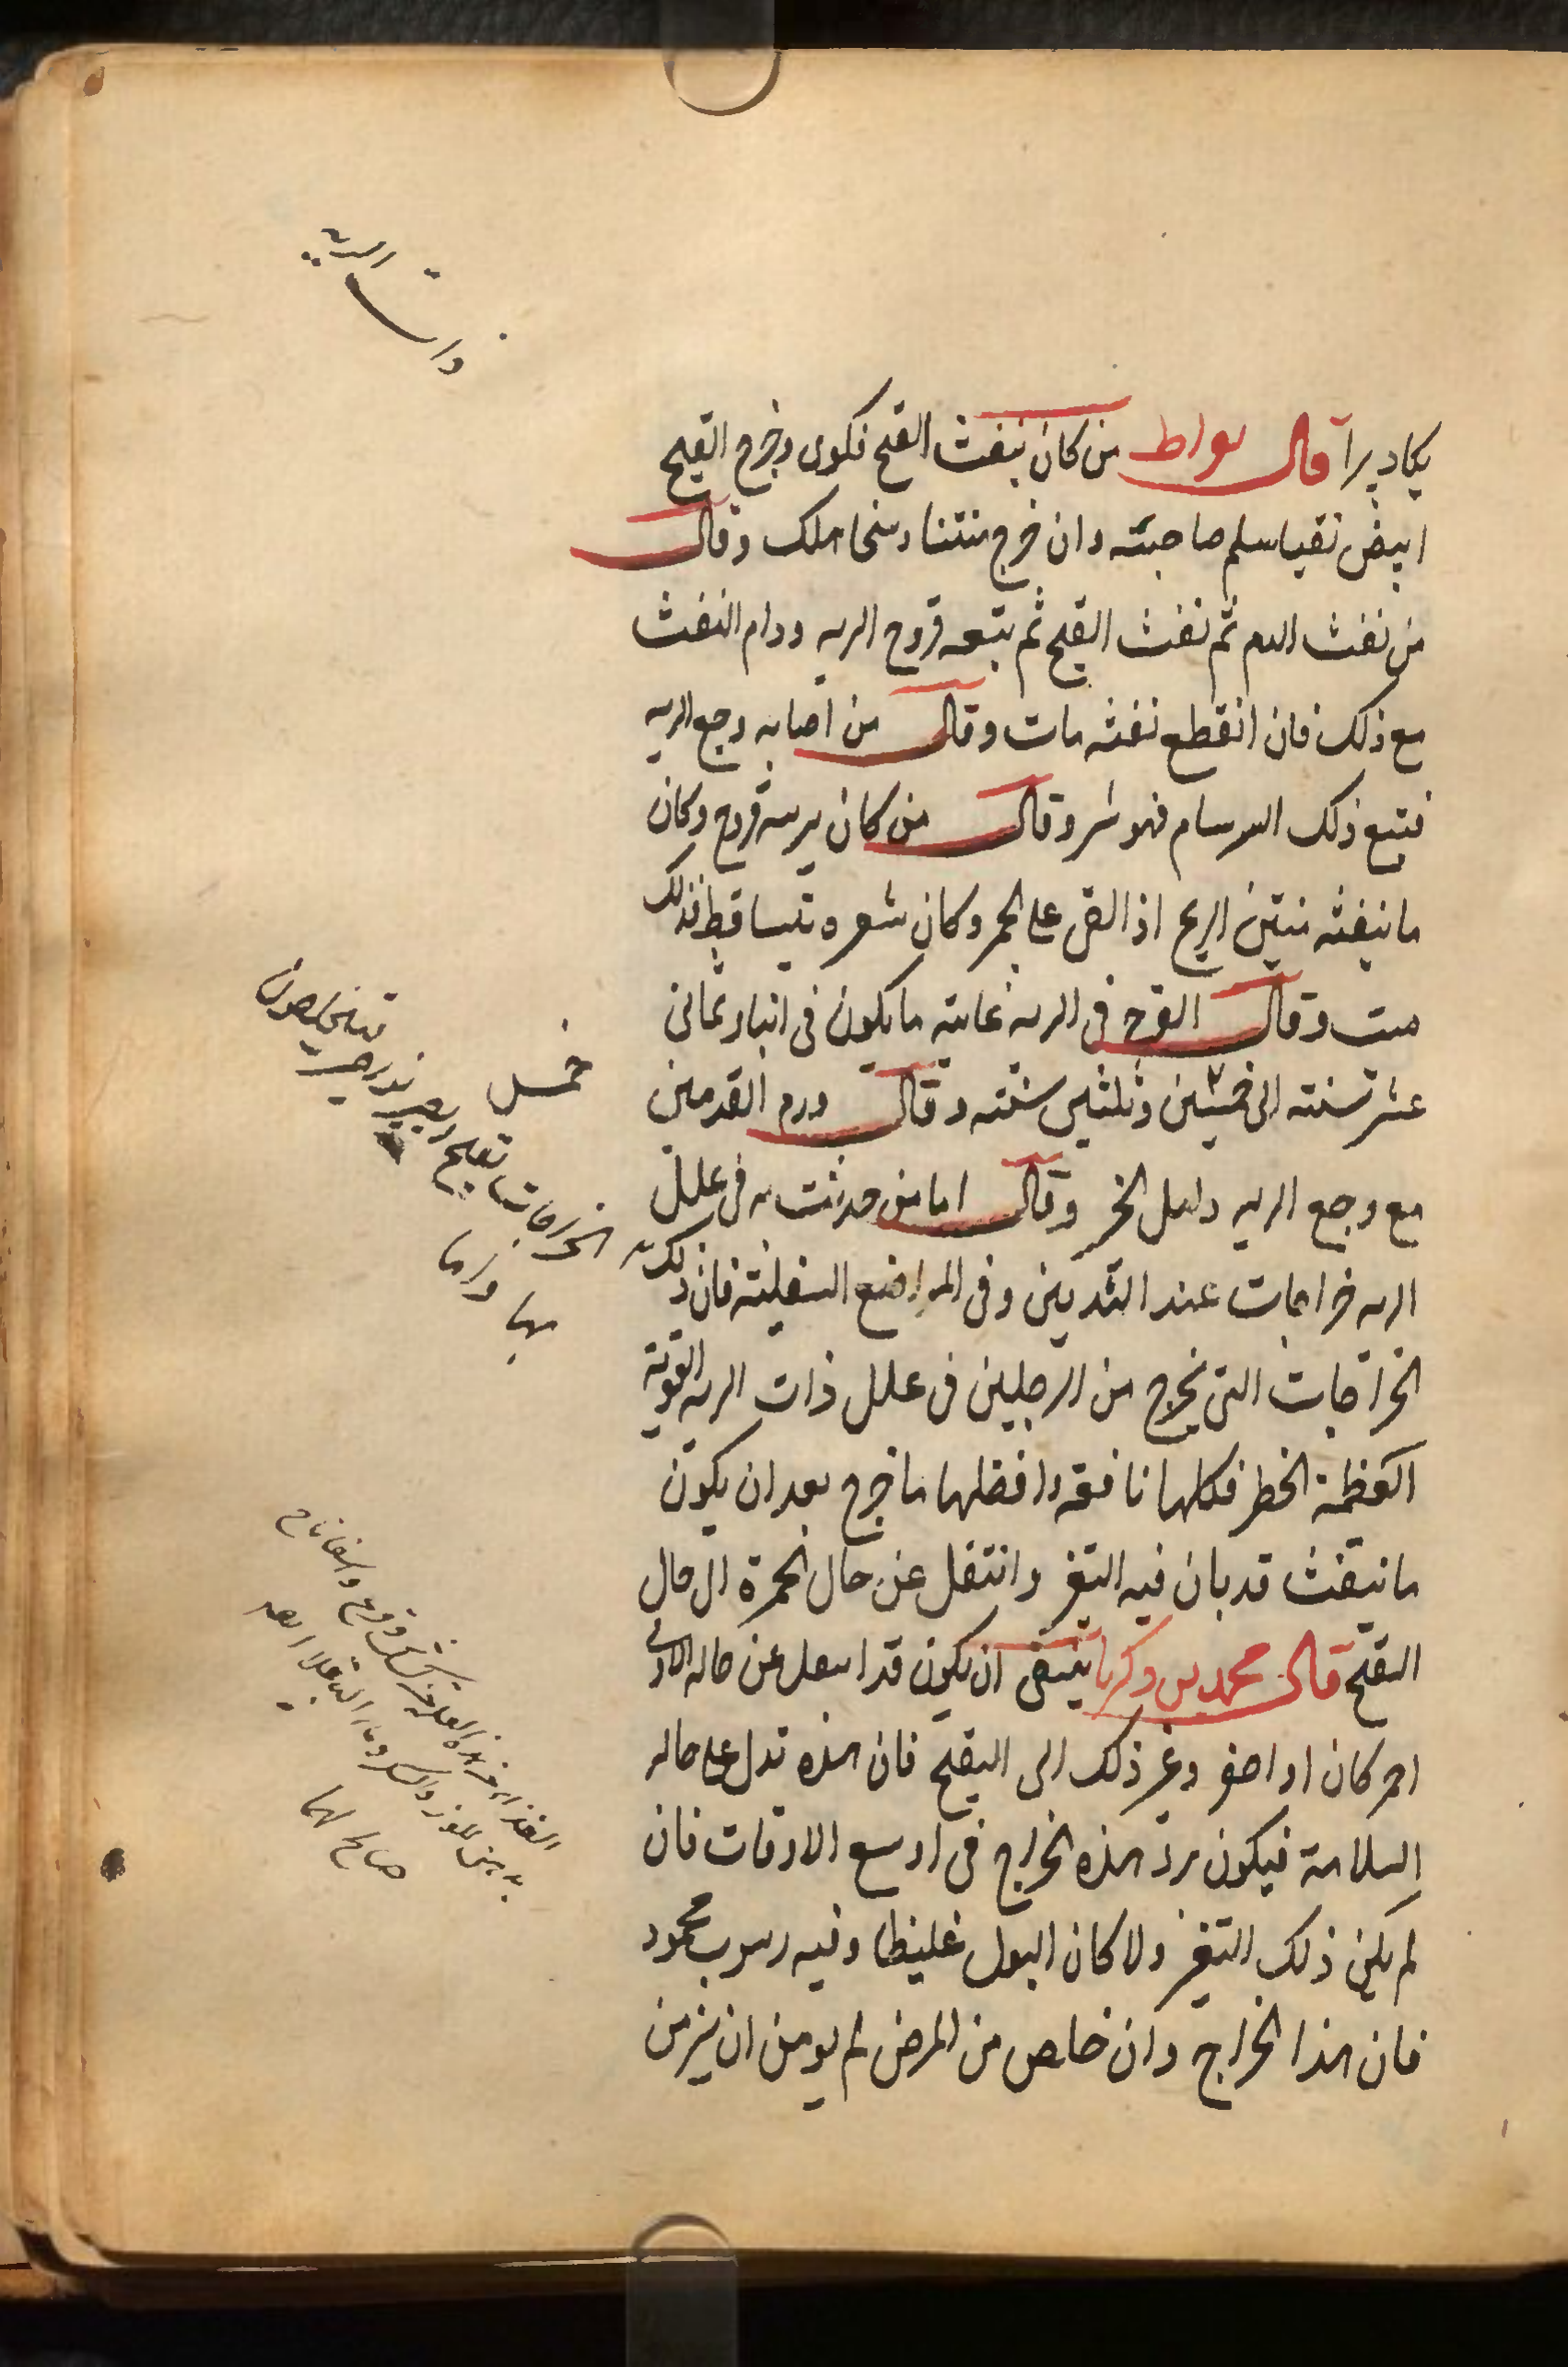 ذات الريه
يكاد يبرا قال بقراط من كان ينفث القيح فكوى وخرج القيح
ابيض نقيا سلم صاحبته وان خرج منتنا وسخا هلك وقال
من نفث الدم ثم نفث القيح ثم يتبعه قروح الريه ودام النفث
مع ذلك فان انقطع نفثه مات وقال من اصابه وجع الريه
فتبع ذلك السرسام فهو شر وقال من كان بريته قروح وكان
ما ينفثه منتن الريح اذا القى على الجمر وكان شعره يتساقط فذلك
ميت وقال القرح فى الريه غايته ما يكون فى ابناء ثمانى
عشر سنته الى خمسين وثلثين سنته وقال ورم القدمين
مع وجع الريه دليل الخير وقال اما من حدثت به فى علل
الريه خراجات عند الثديين وفى المواضع السفليته فان ذلك
الخراجات التى تخرج من الرجلين فى علل ذات الريه القوية
العظيمة الخطر فكلها نافعه وافضلها ما خرج بعد ان يكون
ما ينفث قد بان فيه التغير وانتقل عن حال الحمرة الى حال
التقيح قال محمد بن زكريا ينبغى ان يكون قد انتقل عن حاله الاولى
احمر كان او اصفر وغير ذلك الى التقيح فان هذه تدل على حاله
السلامة فيكون برؤ هذه الخراج فى اوسع الاوقات فان
لم يكن ذلك التغير ولا كان البول غليظا وفيه رسوب محمود
فان هذا الخراج وان خلص من المرض لم يومن ان يزمن
الخراجات تقيح
بها واما
صالح لهما